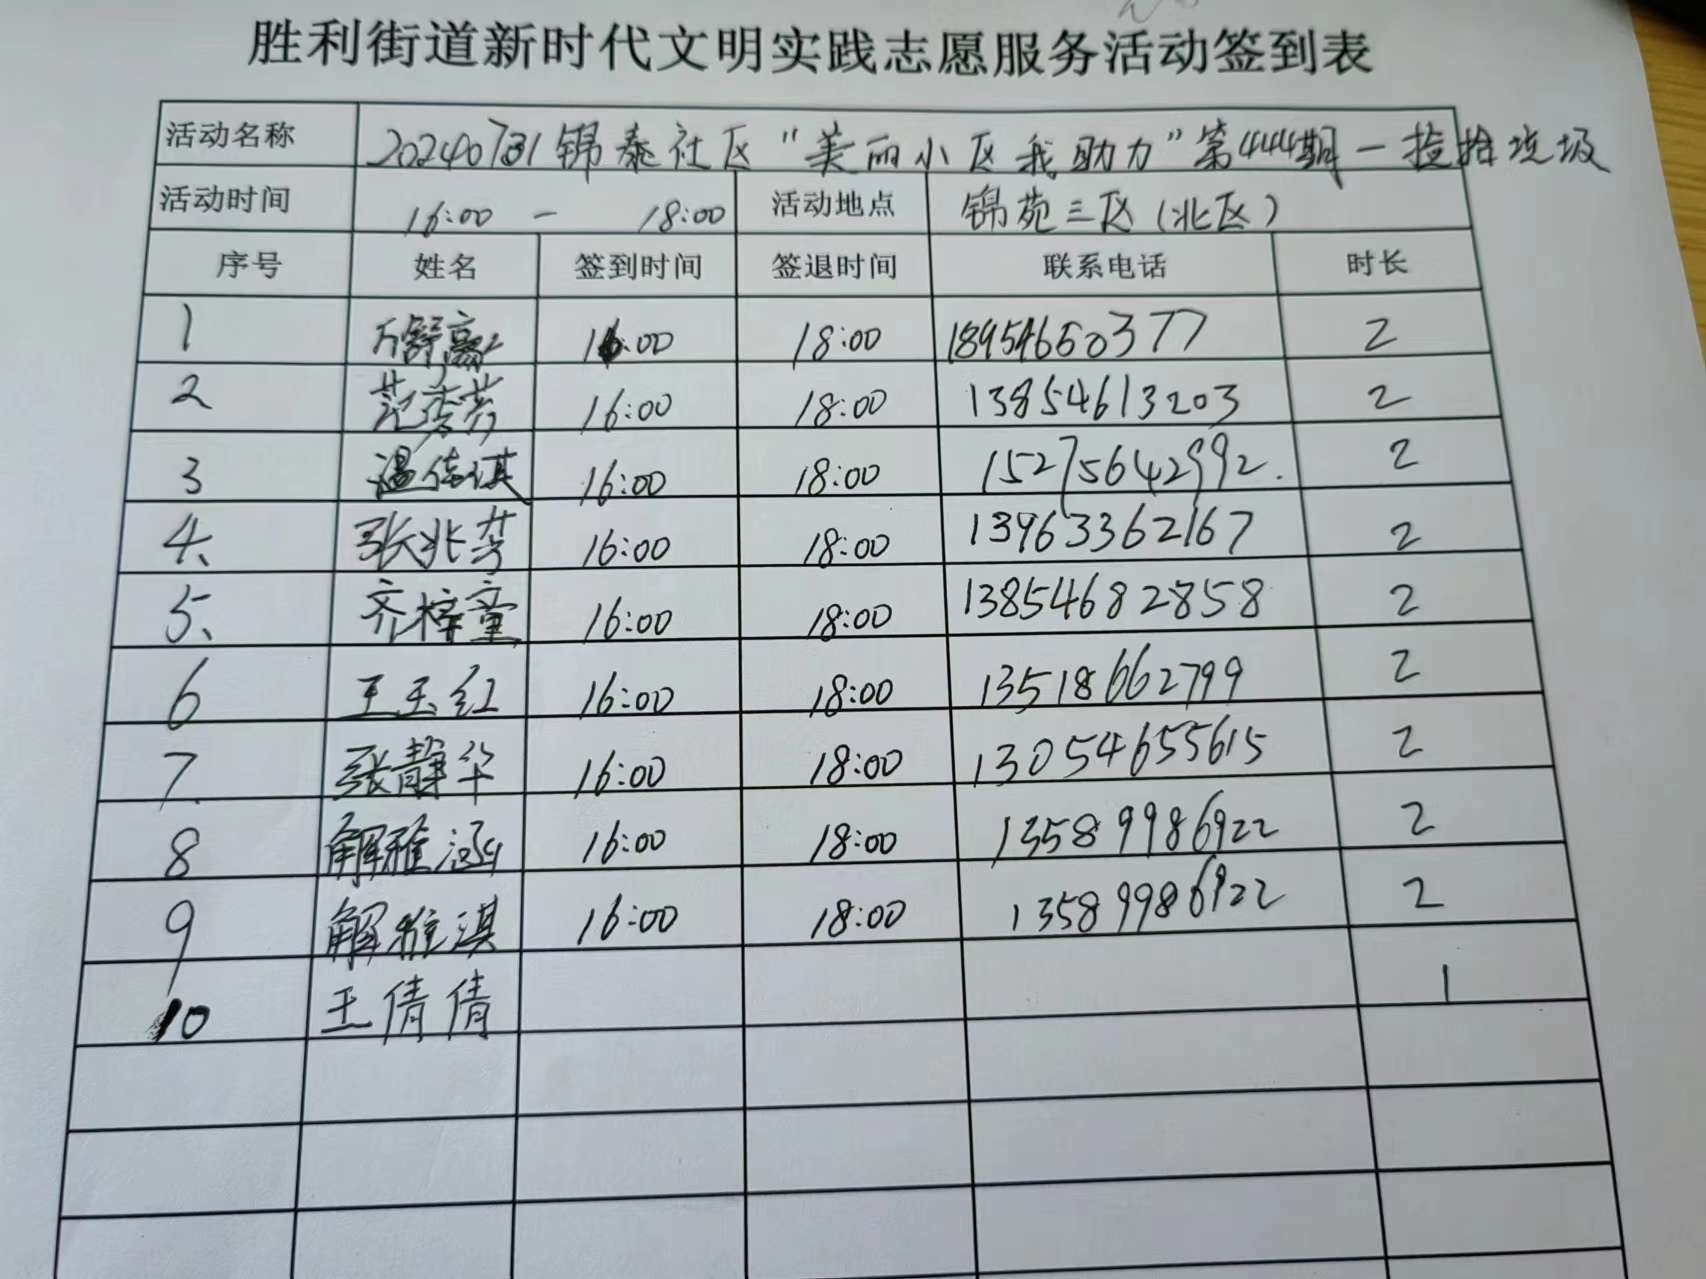 胜利街道新时代文明实践志愿服务活动签到表
活动名称 20240731锦泰社区“美丽小区我助力”第444期-捡拾垃圾
活动时间 16:00 - 18:00 活动地点 锦苑三区(北区)
序号 姓名 签到时间 签退时间 联系电话 时长
1 万舒 16:00 18:00 18954660377 2
2 范秀芳 16:00 18:00 13854613203 2
3 温佳琪 16:00 18:00 15275642992. 2
4、 张兆芳 16:00 18:00 13963362167 2
5、 齐梓童 16:00 18:00 13854682858 2
6 王玉红 16:00 18:00 13518662799 2
7 张静华 16:00 18:00 13054655615 2
8 解雅涵 16:00 18:00 13589986922 2
9 解雅淇 16:00 18:00 13589986922 2
10 王倩倩 1